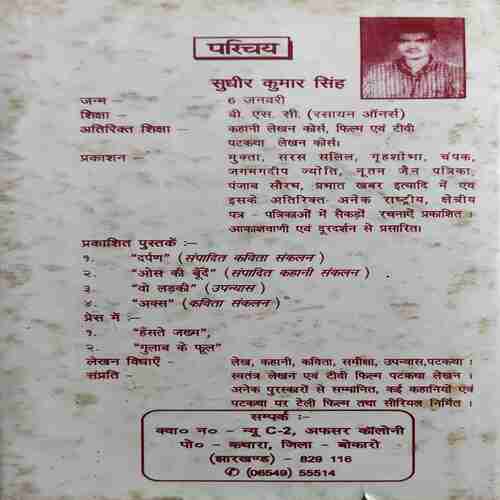 परिचय
सुधीर कुमार सिंह
जन्म - 6 जनवरी
शिक्षा - बी. एस. सी. (रसायन ऑनर्स)
अतिरिक्त शिक्षा - कहानी लेखन कोर्स, फिल्म एवं टीवी
पटकथा लेखन कोर्स।
प्रकाशन - मुक्ता, सरस सलिल, गृहशोभा, चंपक,
जगमगदीप ज्योति, नूतन जैन पत्रिका,
पंजाब सौरभ, प्रभात खबर इत्यादि में एवं
इसके अतिरिक्त अनेक राष्ट्रीय, क्षेत्रीय
पत्र - पत्रिकाओं में सैकड़ों रचनाऐं प्रकाशित ।
आकाशवाणी एवं दूरदर्शन से प्रसारित।
प्रकाशित पुस्तकें :-
१. "दर्पण" (संपादित कविता संकलन)
२. "ओस की बूँदें" (संपादित कहानी संकलन )
३. "वो लड़की" (उपन्यास )
४. "अक्स" (कविता संकलन )
प्रेस में :-
१. "हँसते जख्म",
२. "गुलाब के फूल"
लेखन विधाऐं - लेख, कहानी, कविता, समीक्षा, उपन्यास,पटकथा ।
संप्रति - स्वतंत्र लेखन एवं टीवी फिल्म पटकथा लेखन ।
अनेक पुरस्कारों से सम्मानित, कई कहानियों एवं
पटकथा पर टेली फिल्म तथा सीरियल निर्मित ।
सम्पर्क :-
क्वा० न० - न्यू C-2, अफसर कॉलोनी
पो० - कथारा, जिला - बोकारो
(झारखण्ड) - 829 116
✆ (06549) 55514